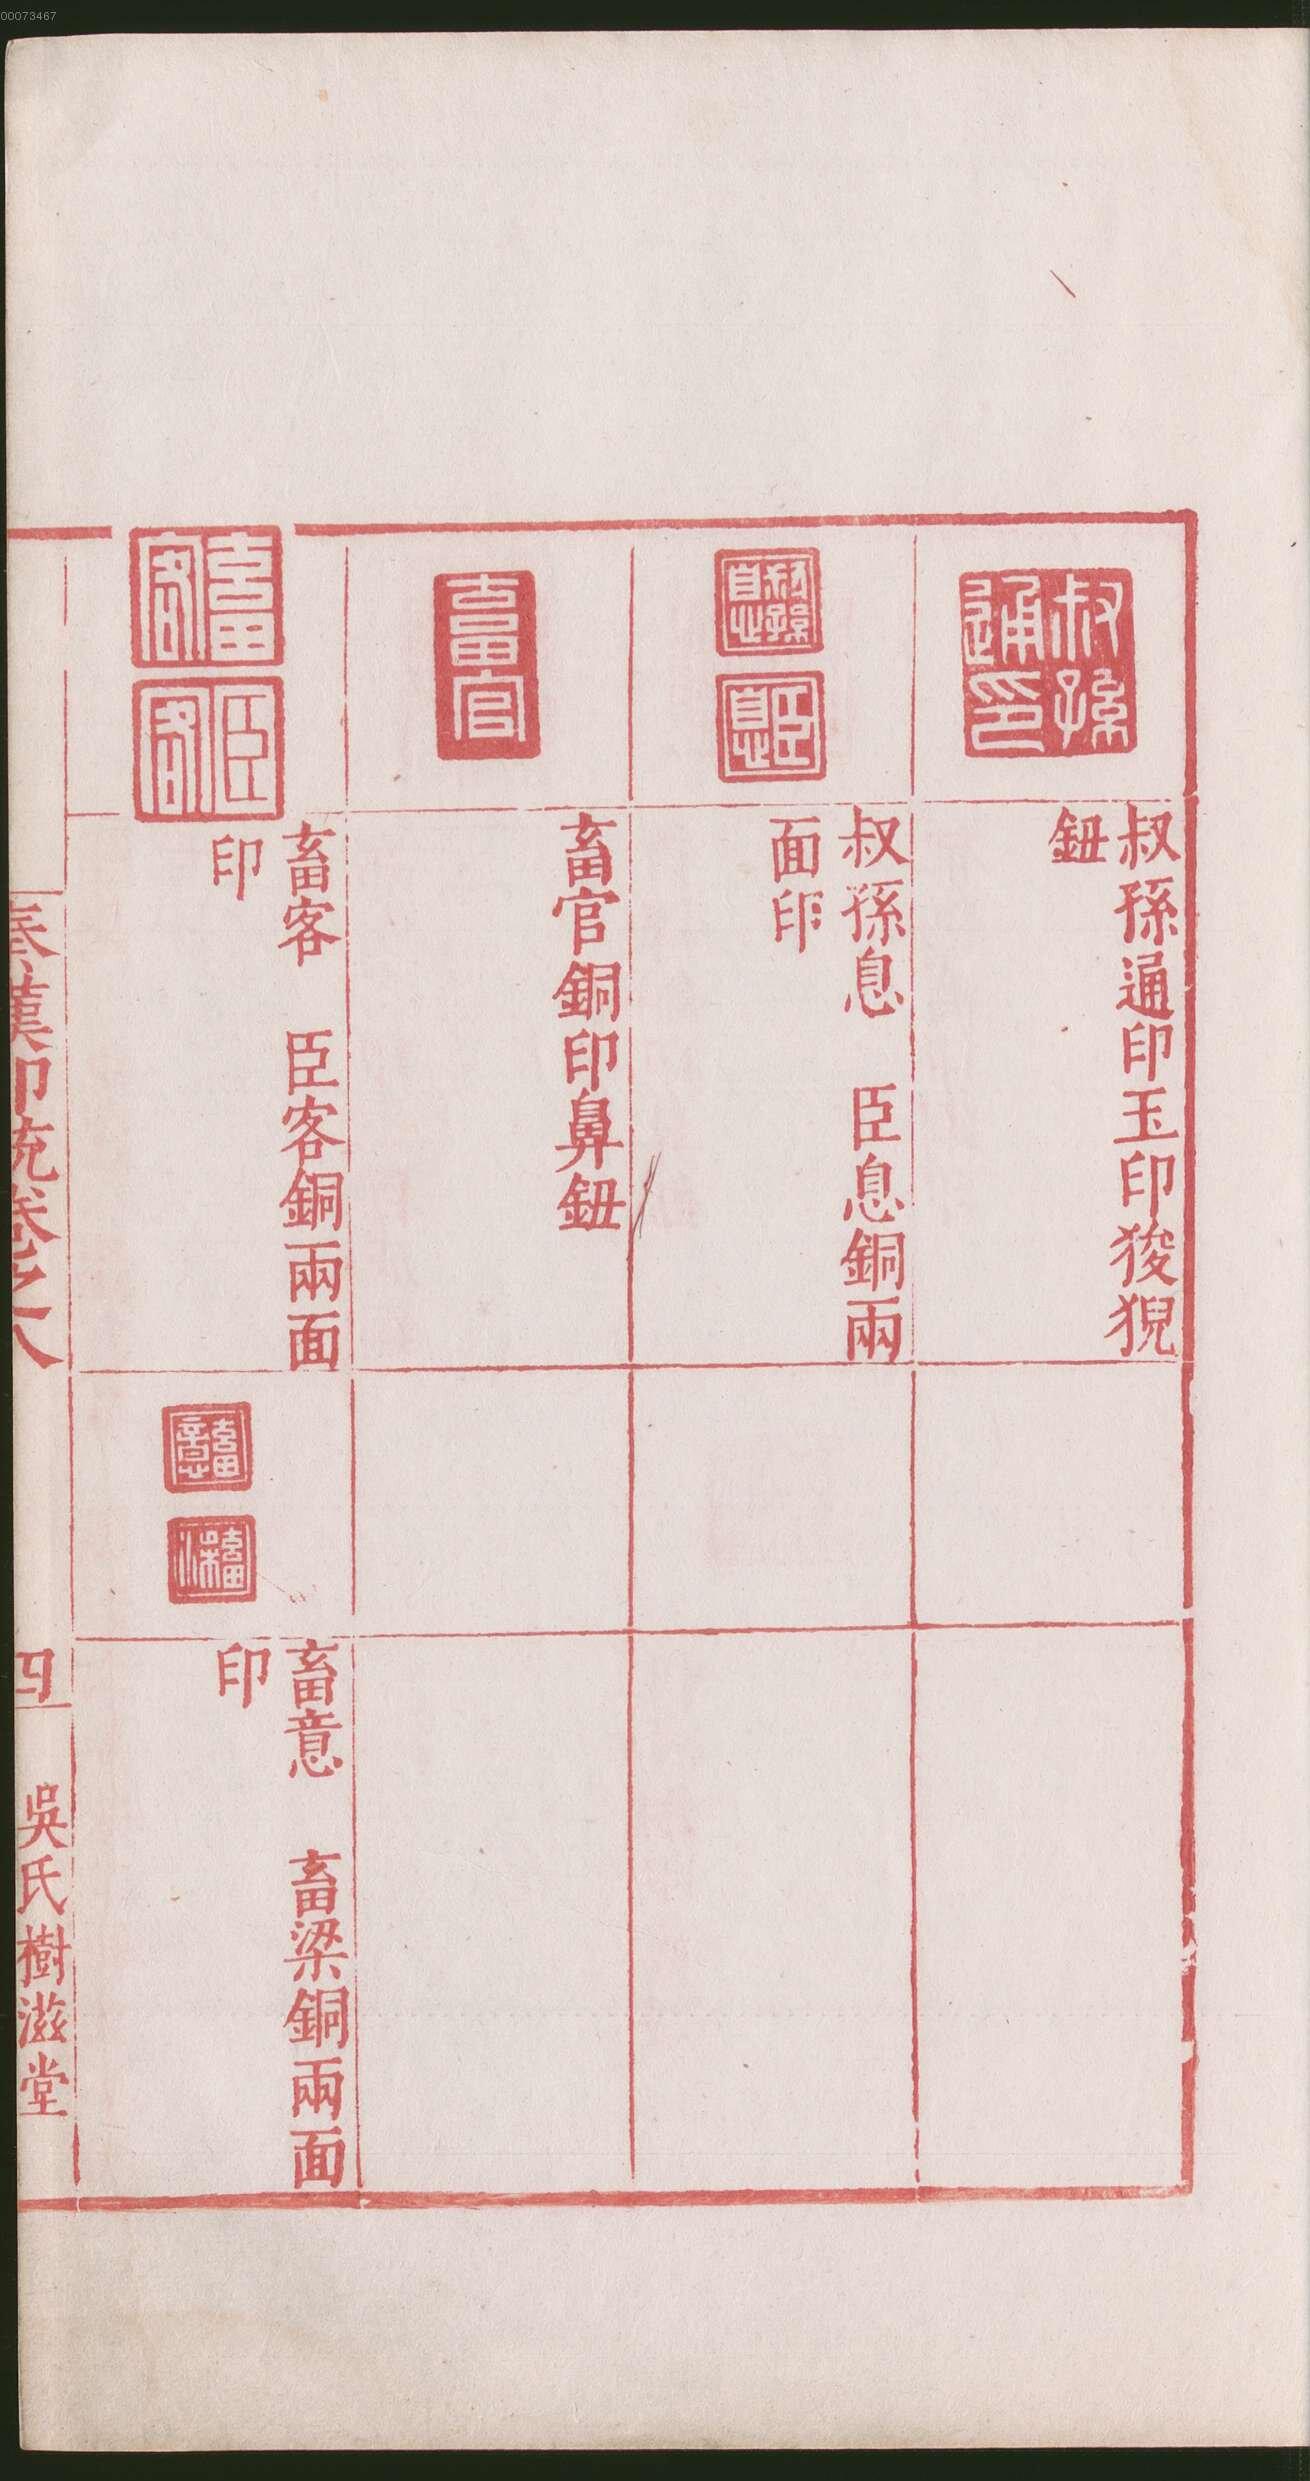 00073467
叔孫通印
叔孫通印玉印狻猊
鈕
叔孫息
臣息
叔孫息　臣息銅兩
面印
畜官
畜官銅印鼻鈕
畜客
臣客
畜客　臣客銅兩面
印
畜意
畜梁
畜意　畜梁銅兩面
印
秦漢印統卷之八
四
吳氏樹滋堂